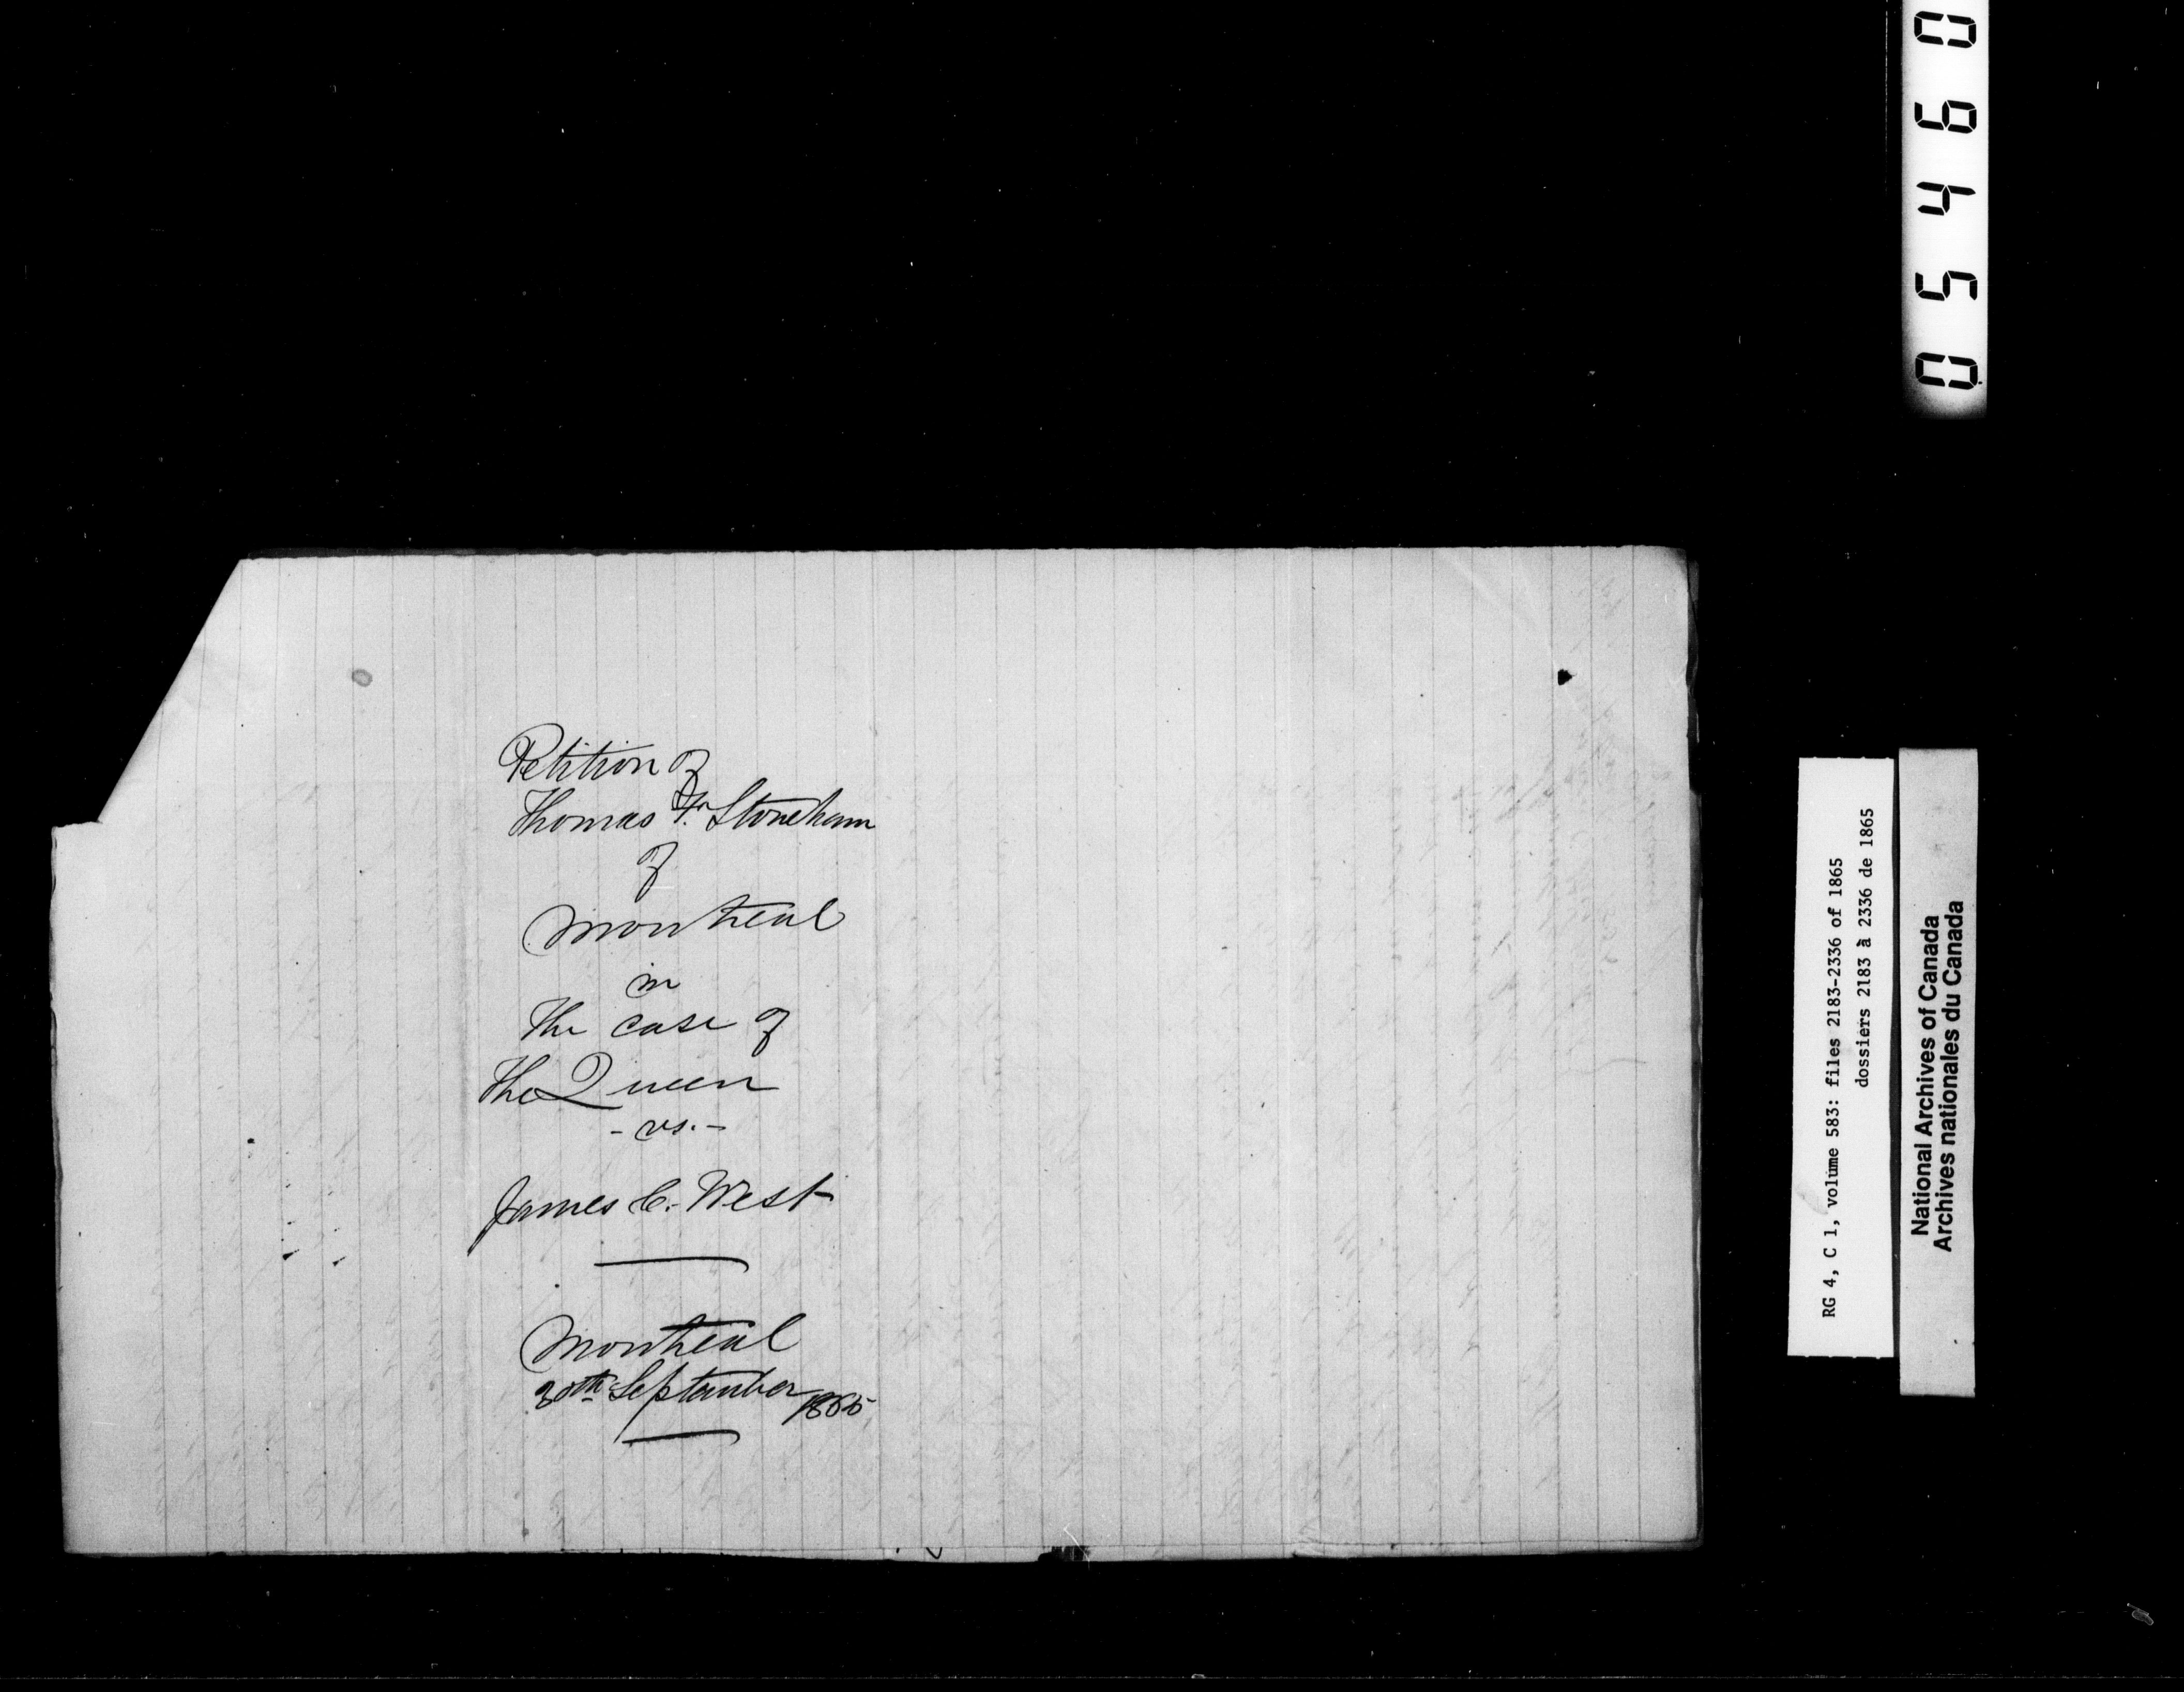 Petition of
Thomas F. Stoneham
of
Montreal
in
The case of
The Queen
- vs. -
James C. West
Montreal
30th September 1865
05460
RG 4, C 1, volume 583: files 2183-2336 of 1865
dossiers 2183 à 2336 de 1865
National Archives of Canada
Archives nationales du Canada